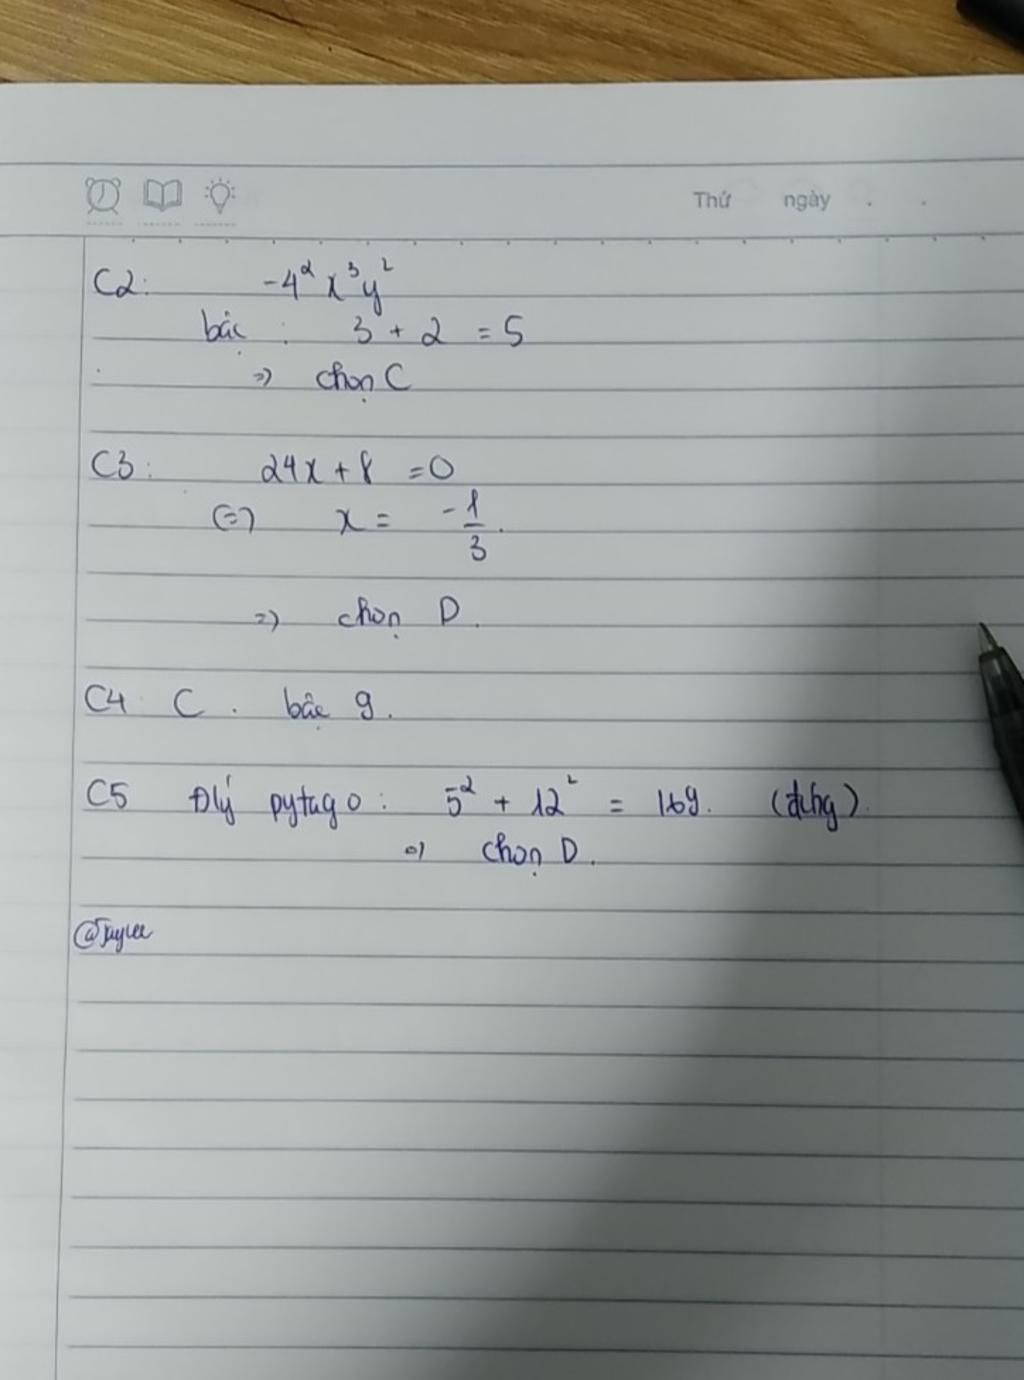 Thứ ngày . .
C2: -4² x³y²
bậc : 3 + 2 = 5
=> chọn C
C3: 24x + 8 = 0
(=) x = -1/3.
=) chọn D.
C4 C . bâc 9.
C5 Đlý pytago: 5² + 12² = 169. (đúng).
=) chọn D.